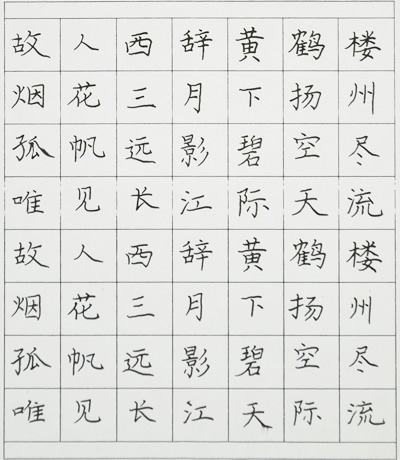 故人西辞黄鹤楼
烟花三月下扬州
孤帆远影碧空尽
唯见长江际天流
故人西辞黄鹤楼
烟花三月下扬州
孤帆远影碧空尽
唯见长江天际流